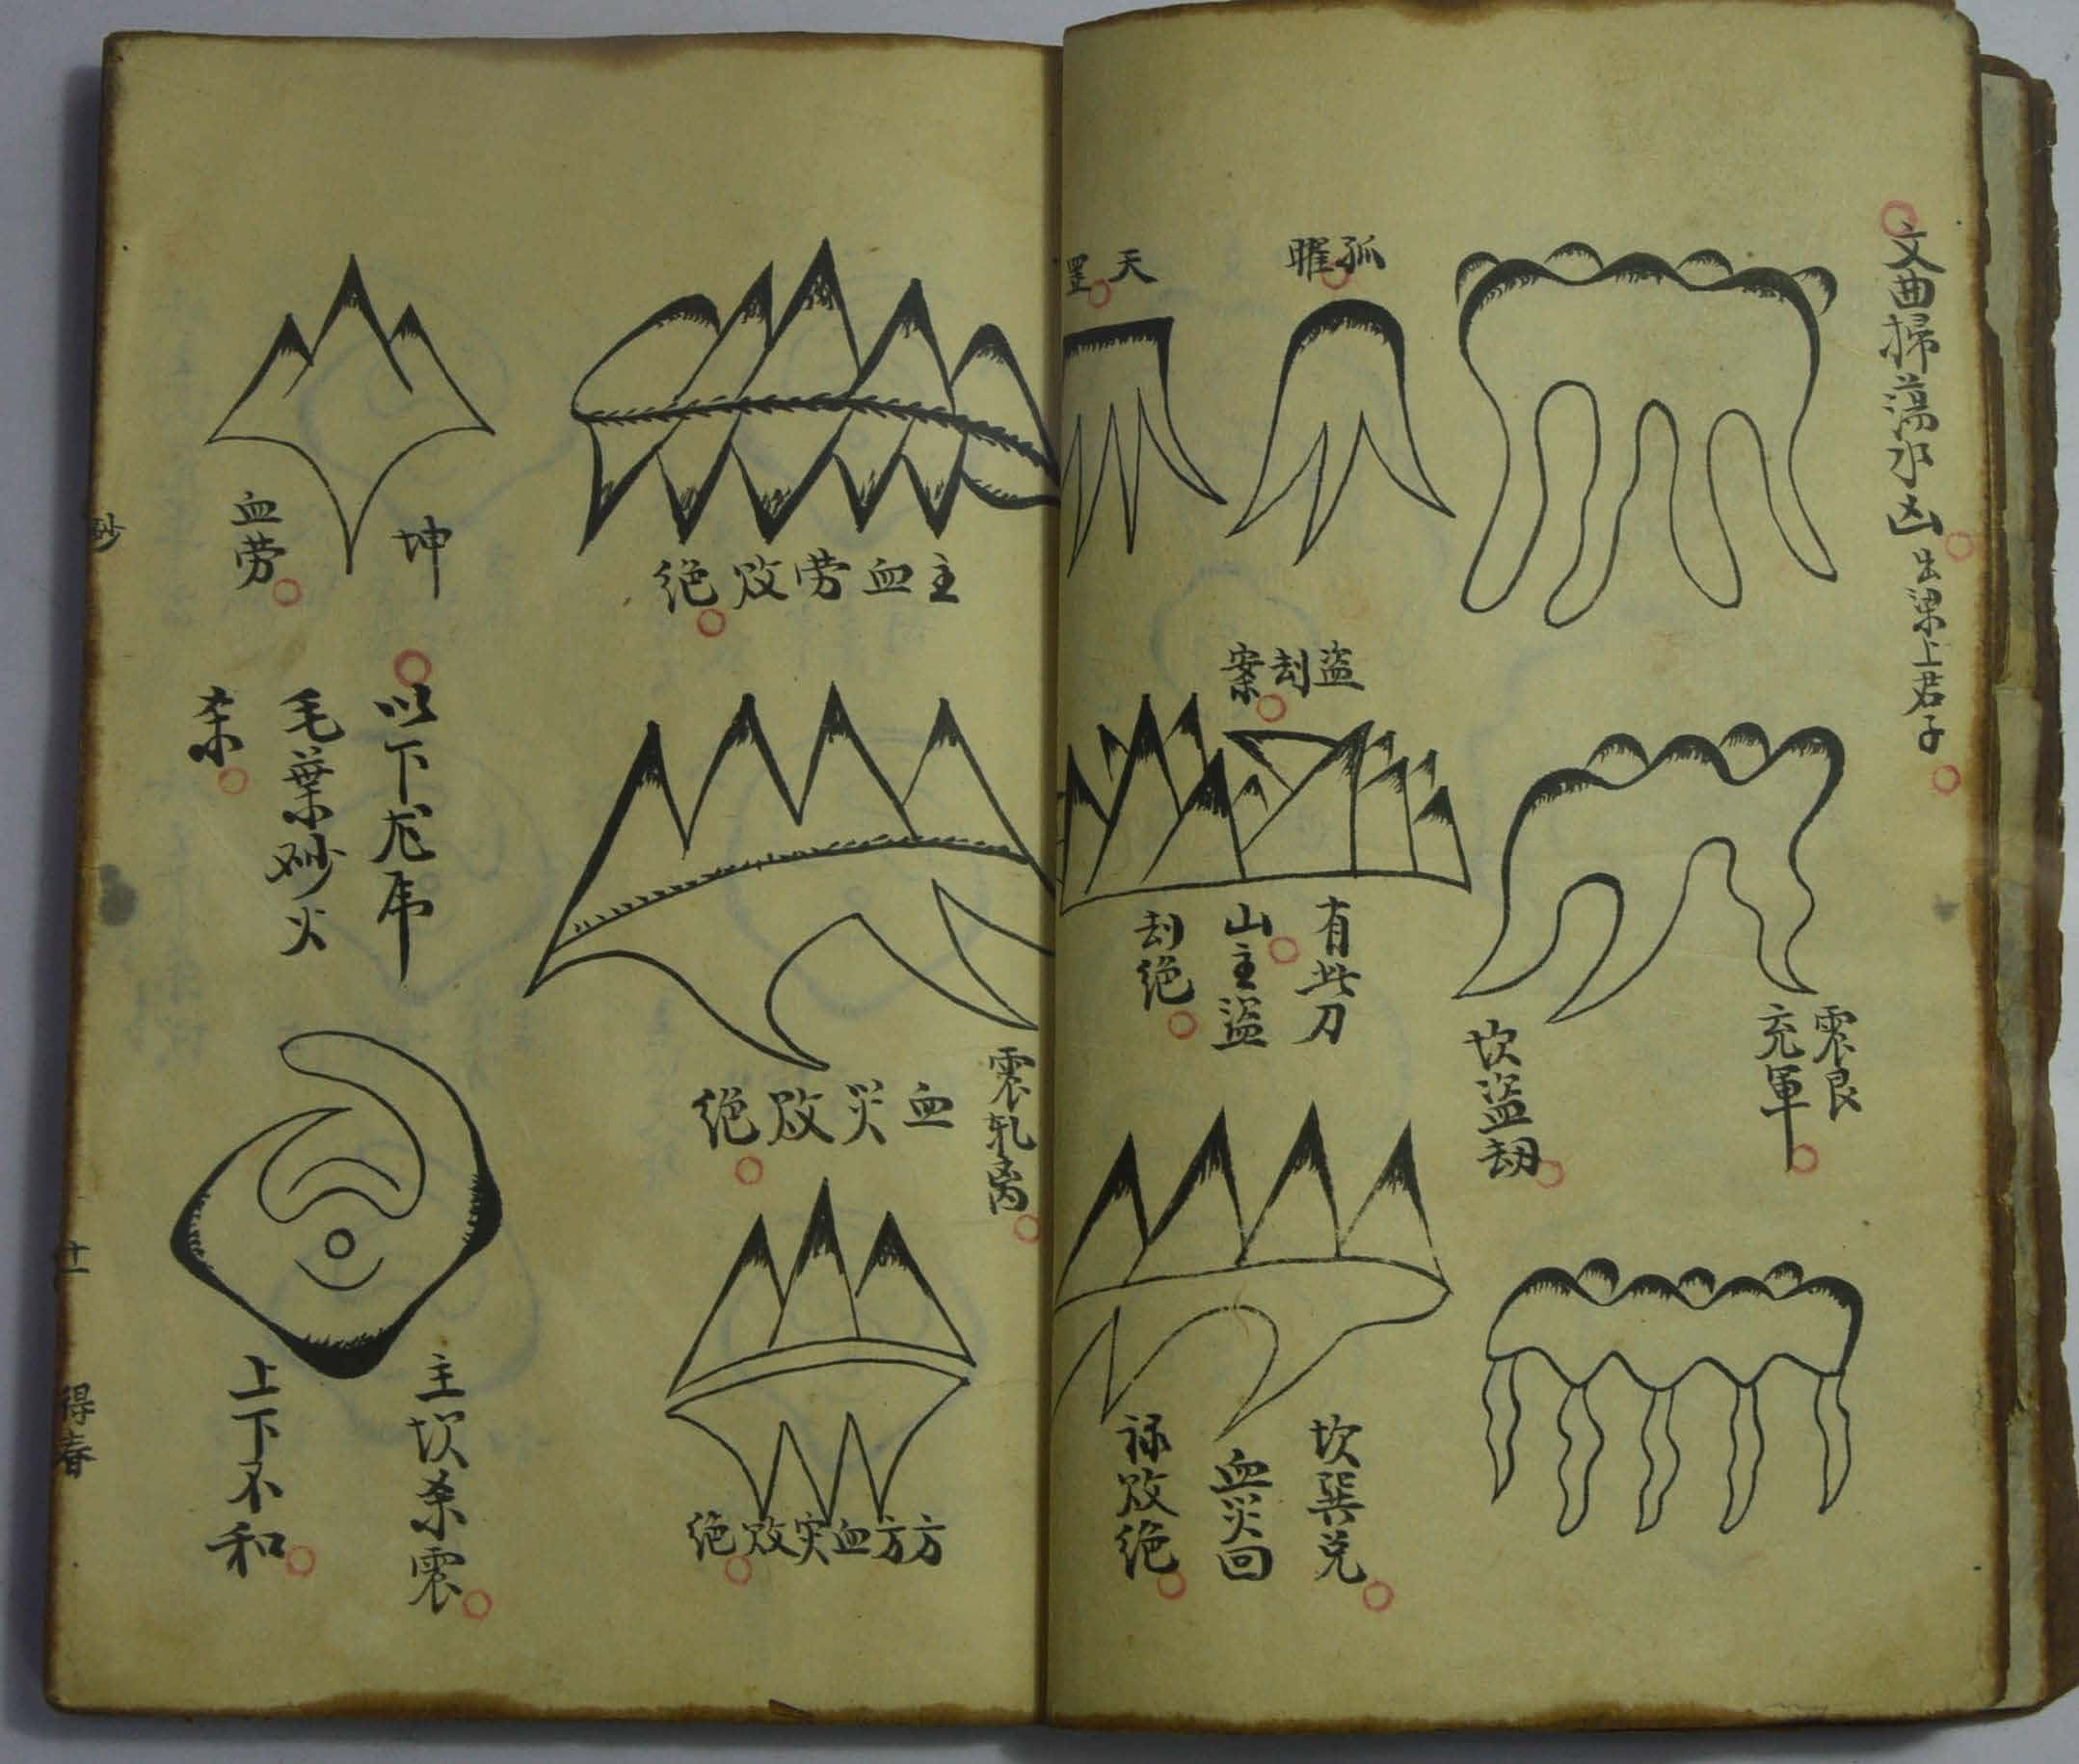 文曲掃蕩水凶
出梁上君子
震艮
充軍
坎盜劫
孤曜
天罡
盜刦案
有此刀
山主盜
刦絶
坎巽兌
血災回
祿敗絶
主血劳敗絶
血災敗絶
震乹离
方方血灾敗絶
坤
血劳
以下龙虎
毛葉砂火
杀
主坎杀震
上下不和
砂
十一
得春